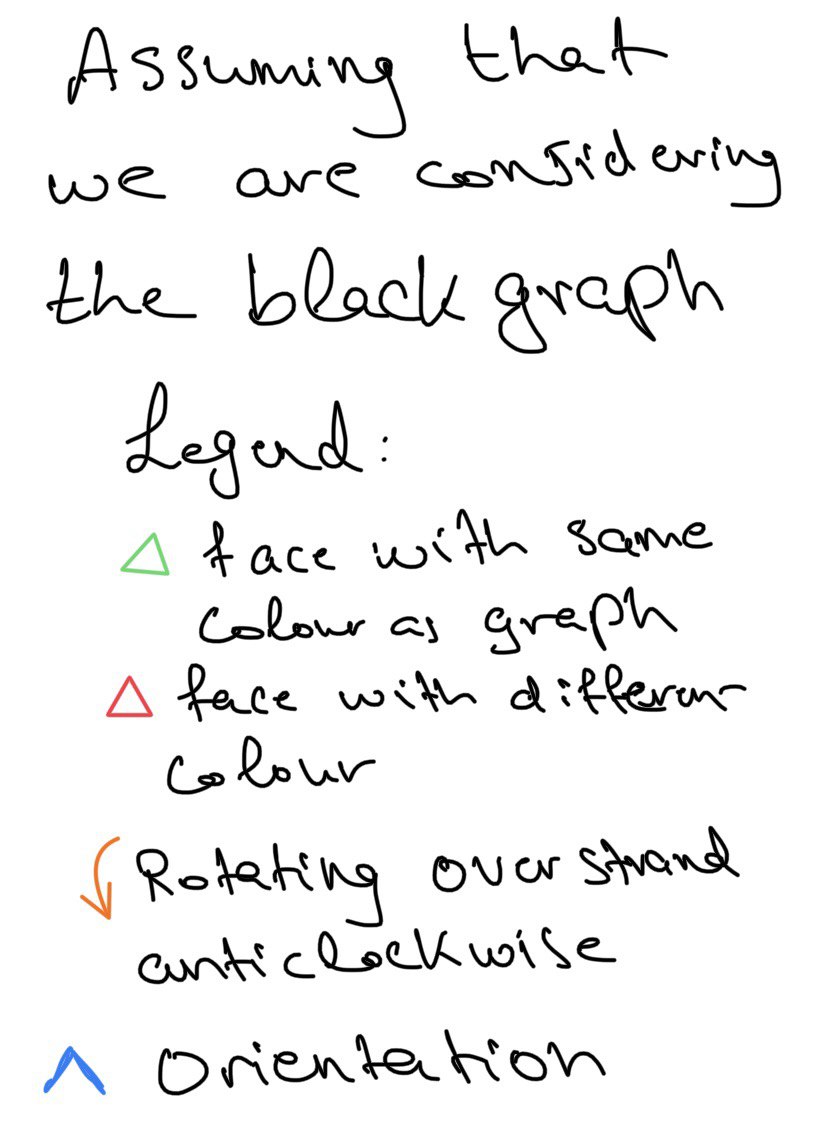 Assuming that
we are considering
the black graph
Legend:
face with same
colour as graph
face with different
colour
Rotating over strand
anticlockwise
Orientation